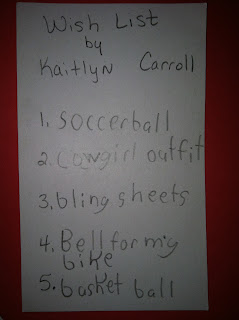 Wish List
by
Kaitlyn Carroll
1. Soccerball
2. Cowgirl outfit
3. bling sheets
4. Bell for my
bike
5. basket ball